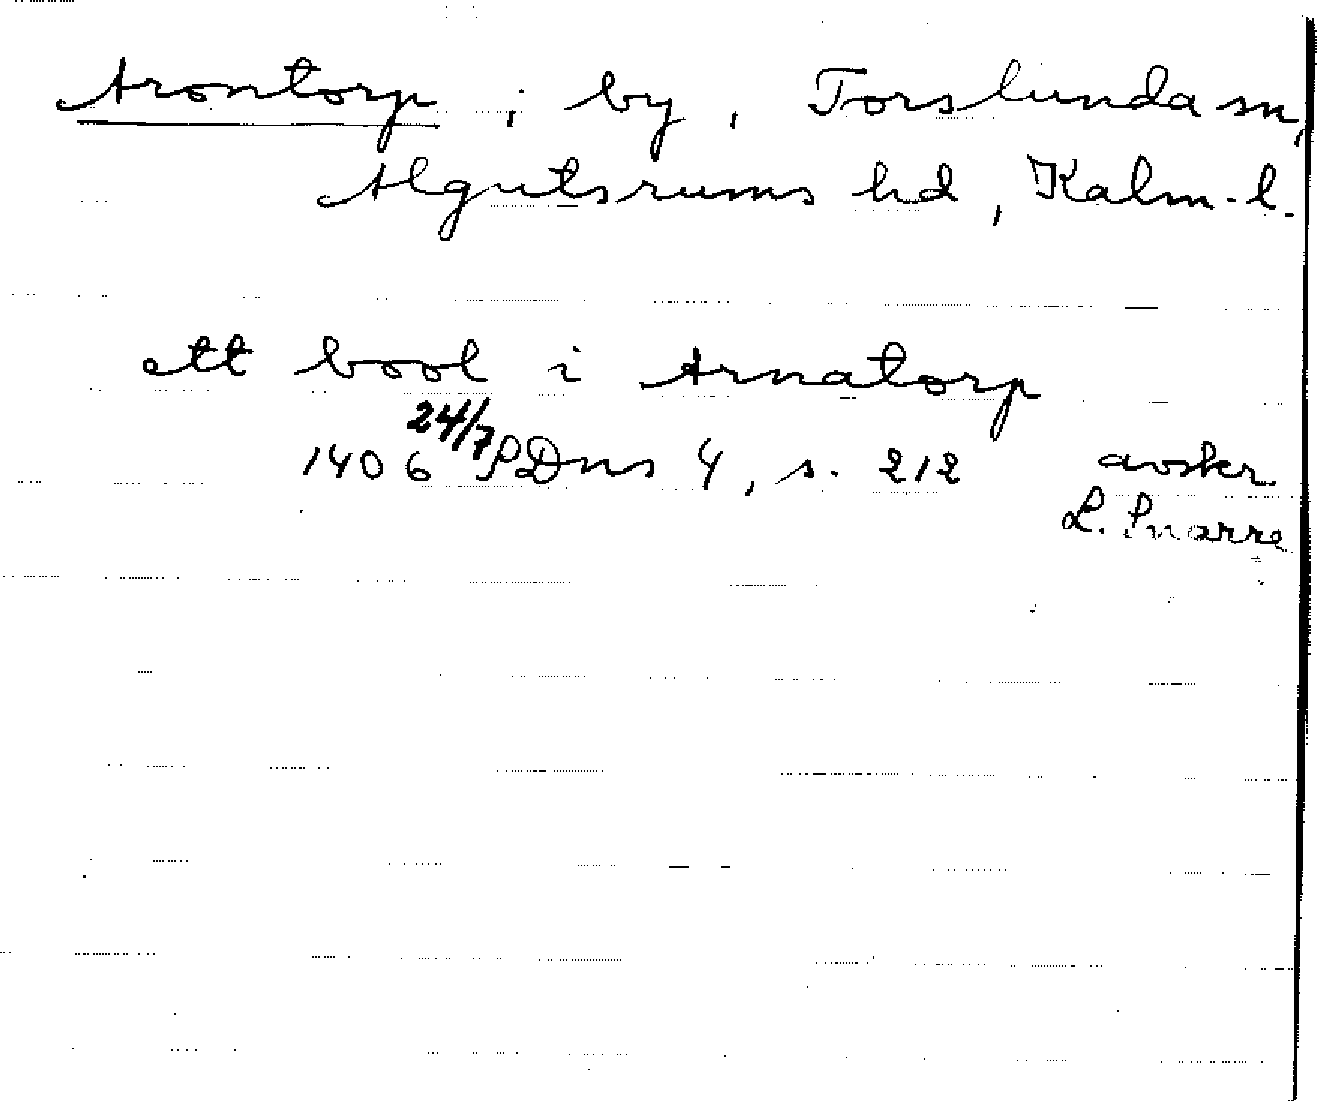 Arontorp, by, Torslunda sn,
Algutsrums hd, Kalm. l.
ett bool i Arnatorp
1406 24/7 SDns 4, s. 212 avskr.
L. Snarre